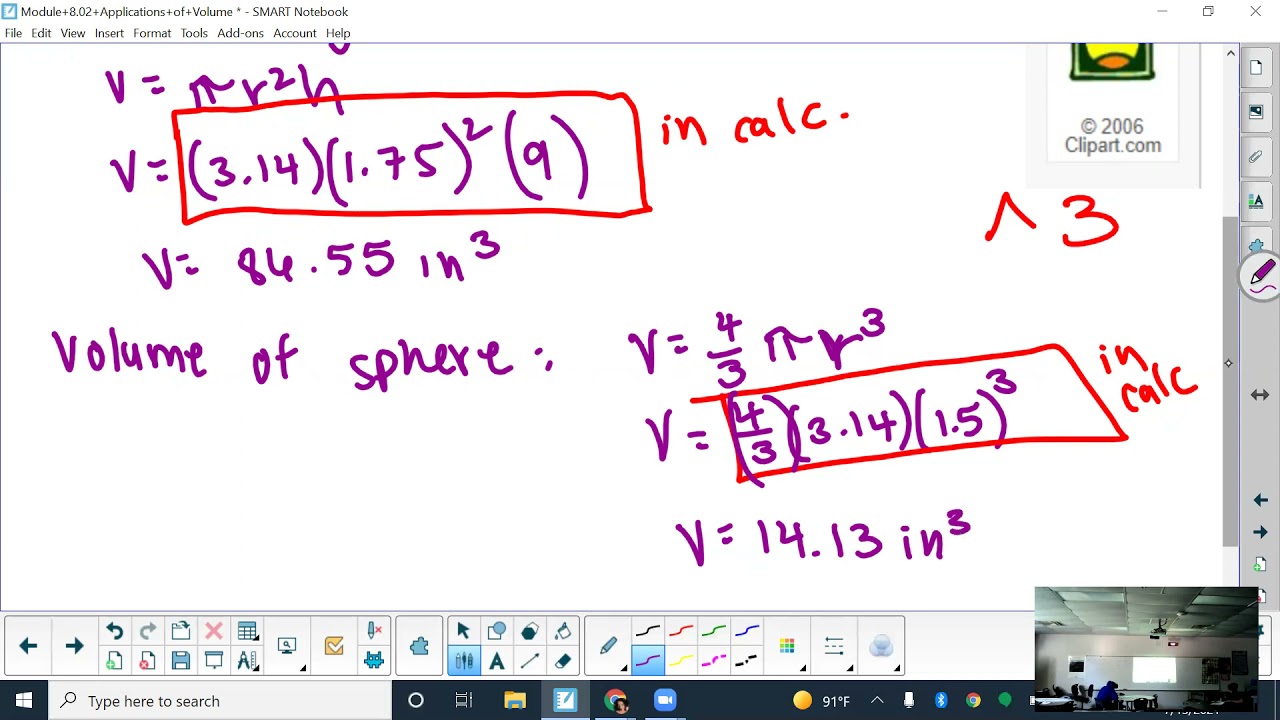 Module+8.02+Applications+of+Volume * - SMART Notebook
File Edit View Insert Format Tools Add-ons Account Help
V = πr²h
V = (3.14)(1.75)² (9)
in calc.
V = 84.55 in³
© 2006
Clipart.com
^ 3
Volume of sphere :
V = 4/3 πr³
V = (4/3)(3.14)(1.5)³
in
calc
V = 14.13 in³
Type here to search
91°F